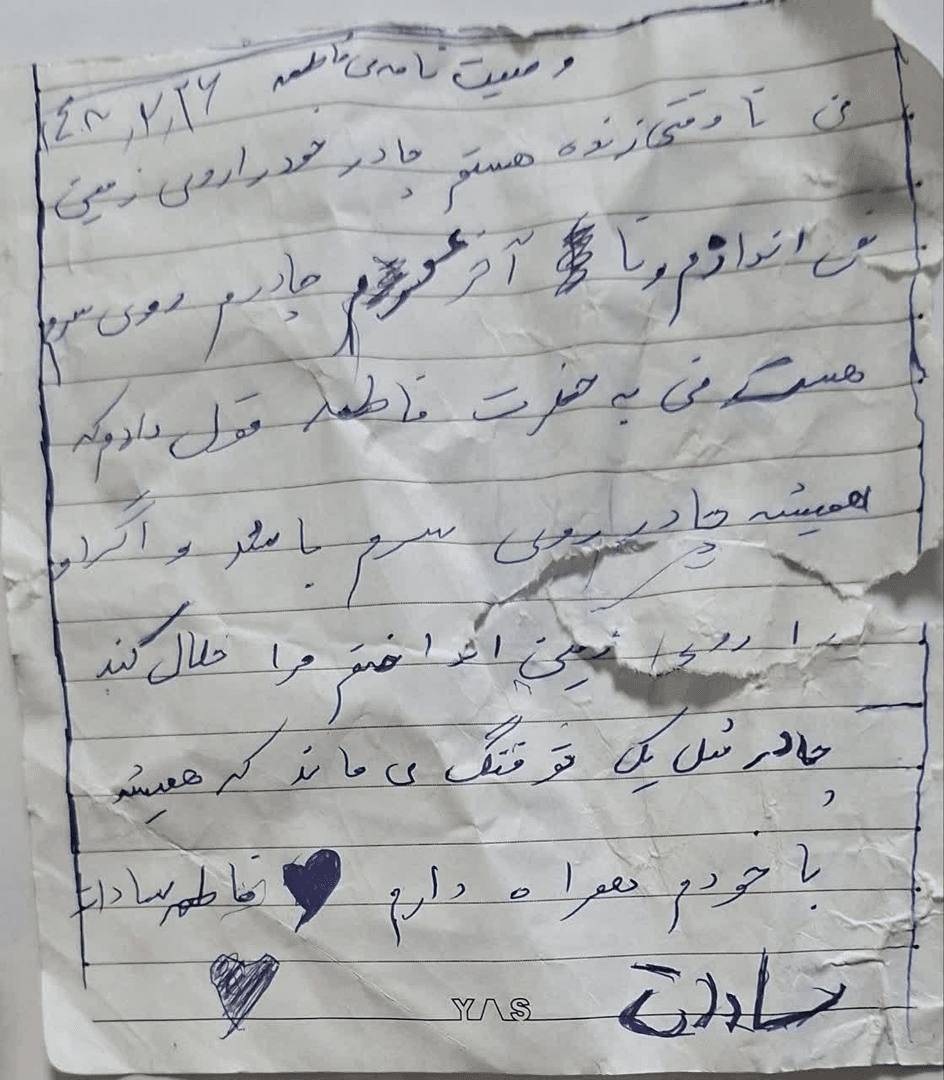 وصیت نامه ی فاطمه ۱۴۰۸,۷,۲۶
من تا وقتی زنده هستم چادر خود را روی زمین
نمی اندازم و تا آخر عمرم چادرم روی سرم
هست من به حضرت فاطمه قول دادم که
همیشه چادر روی سرم باشد و اگر او
را روی زمین انداختم مرا حلال کند
چادر مثل یک تفنگ می ماند که همیشه
با خودم همراه دارم فاطمه سادات
سادات
YAS